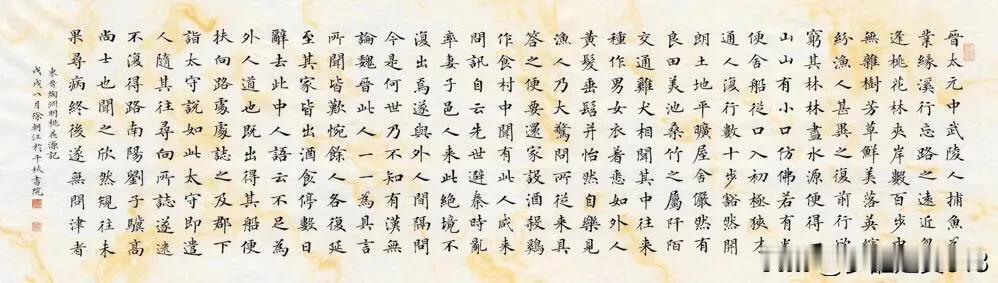 晉太元中武陵人捕魚為
業緣溪行忘路之遠近忽
逢桃花林夾岸數百步中
無雜樹芳草鮮美落英繽
紛漁人甚異之復前行欲
窮其林林盡水源便得
山山有小口仿佛若有光
便舍船從口入初極狹才
通人復行數十步豁然開
朗土地平曠屋舍儼然有
良田美池桑竹之屬阡陌
交通雞犬相聞其中往來
種作男女衣著悉如外人
黃髮垂髫并怡然自樂見
漁人乃大驚問所從來具
答之便要還家設酒殺鷄
作食村中聞有此人咸來
問訊自云先世避秦時亂
率妻子邑人來此絕境不
復出焉遂與外人間隔問
今是何世乃不知有漢無
論魏晉此人一一為具言
所聞皆歎惋餘人各復延
至其家皆出酒食停數日
辭去此中人語云不足為
外人道也既出得其船便
扶向路處處誌之及郡下
詣太守說如此太守即遣
人隨其往尋向所誌遂迷
不復得路南陽劉子驥高
尚士也聞之欣然規往未
果尋病終後遂無問津者
東晉陶淵明桃花源記
戊戌八月徐朝江於千秋書院